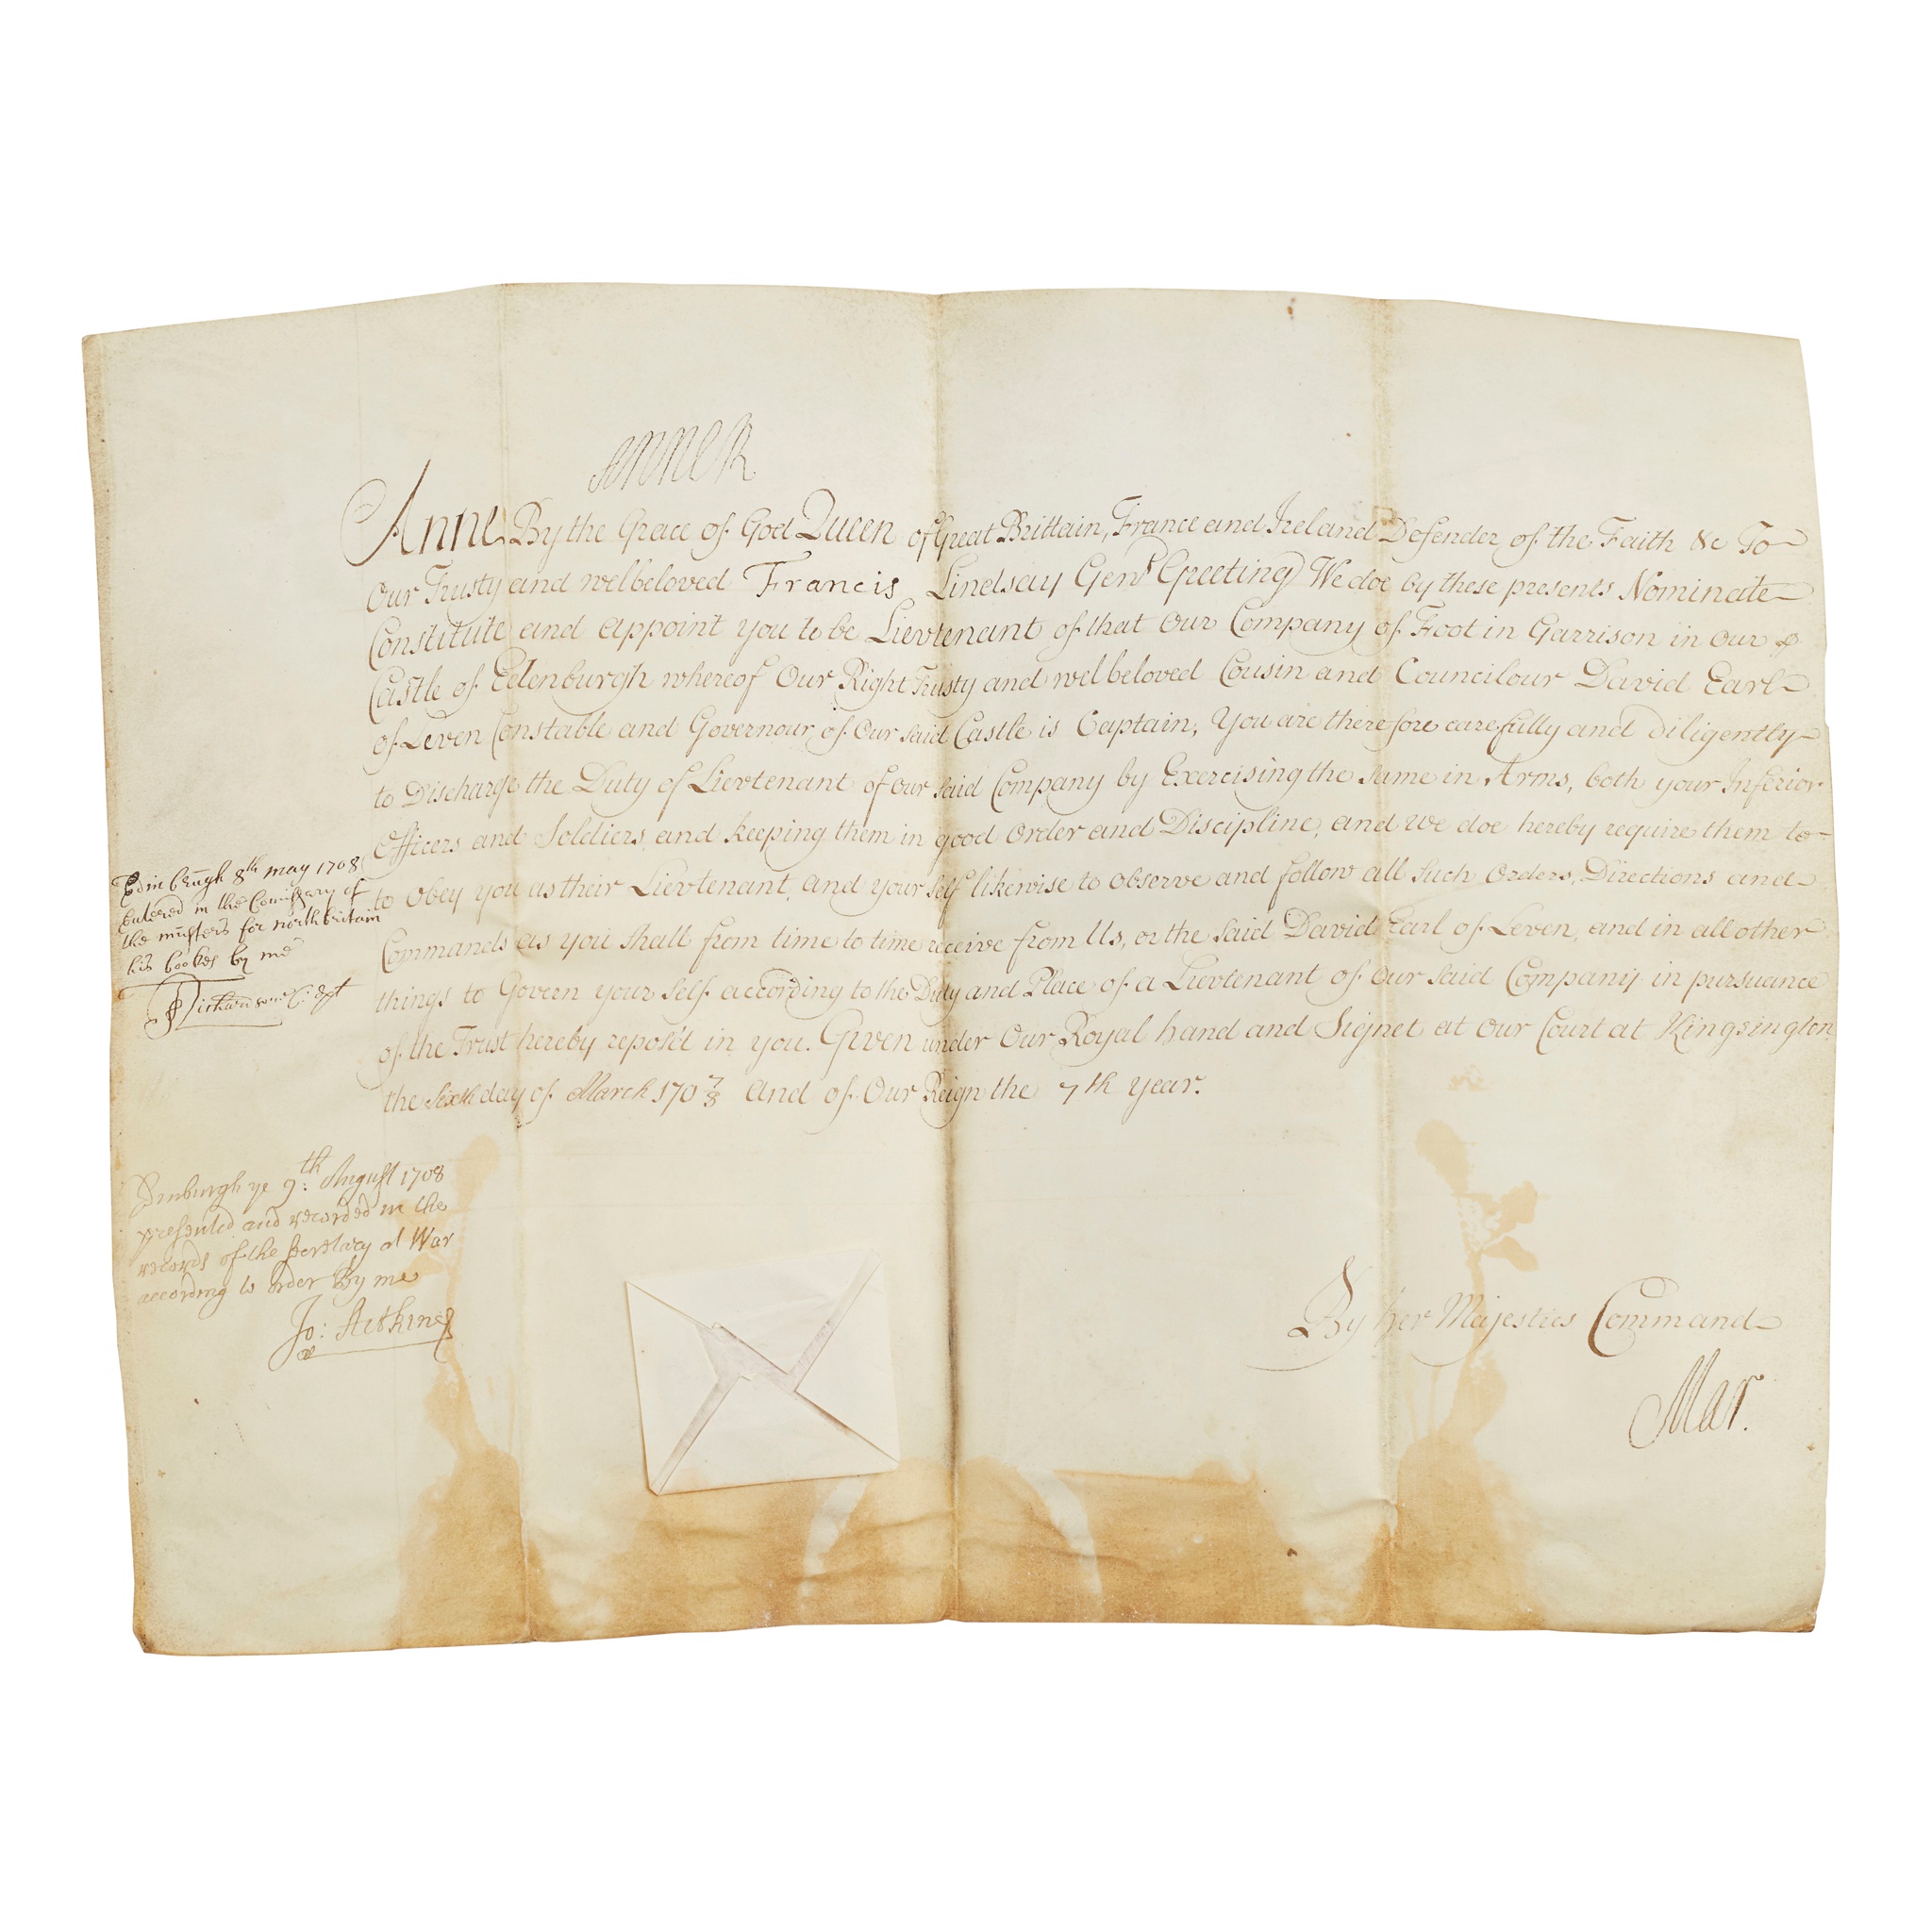 Anne R
Anne By the Grace of God Queen of Great Brittain, France and Ireland Defender of the Faith &c To
Our Trusty and welbeloved Francis Lindsay Gent Greeting We doe by these presents Nominate
Constitute and appoint you to be Lievtenant of that Our Company of Foot in Garrison in our
Castle of Edenburgh whereof Our Right Trusty and welbeloved Cousin and Councilour David Earl
of Leven Constable and Governour of Our said Castle is Captain, You are therefore carefully and diligently
to Discharge the Duty of Lievtenant of our said Company by Exercising the same in Arms, both your Inferior
Officers and Soldiers and keeping them in good Order and Discipline, and we doe hereby require them to
to obey you as their Lievtenant, and your self likewise to observe and follow all such Orders, Directions and
Commands as you shall from time to time receive from Us, or the said David Earl of Leven, and in all other
things to Govern your self according to the Duty and Place of a Lievtenant of Our said Company in pursuance
of the Trust hereby repos'd in you. Given under Our Royal hand and Signet at Our Court at Kingsington
the Sixth day of March 170 7/8 And of Our Reign the 7th year.
Edinbrugh 8th may 1708
Entered in the Comissary of
the musters for north britain
his bookes by me
Dickinsone
Edinburgh ye 9th: August 1708
presented and recorded in the
records of the secretary at War
according to order By me
Jo: Aitkine
By her Majesties Command
Mar.